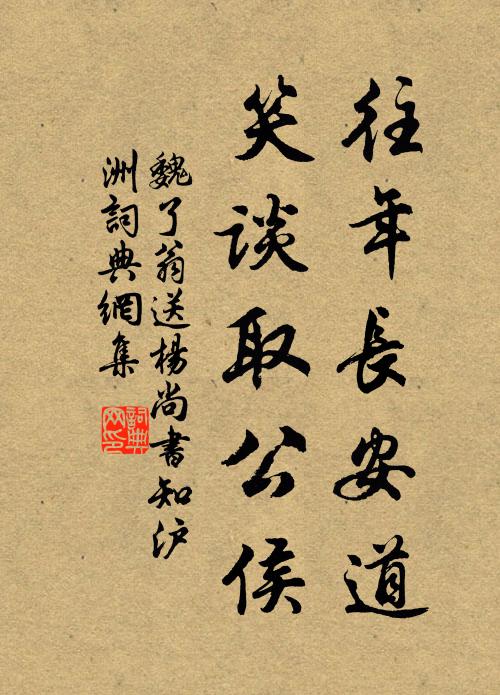 往年長安道
笑談取公侯
魏了翁送楊尚書知沪
洲詞典網集
詞典网印